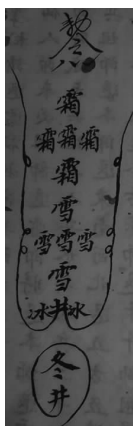 霜
霜霜霜
霜
雪
雪雪雪
雪
冰井冰
冬
井